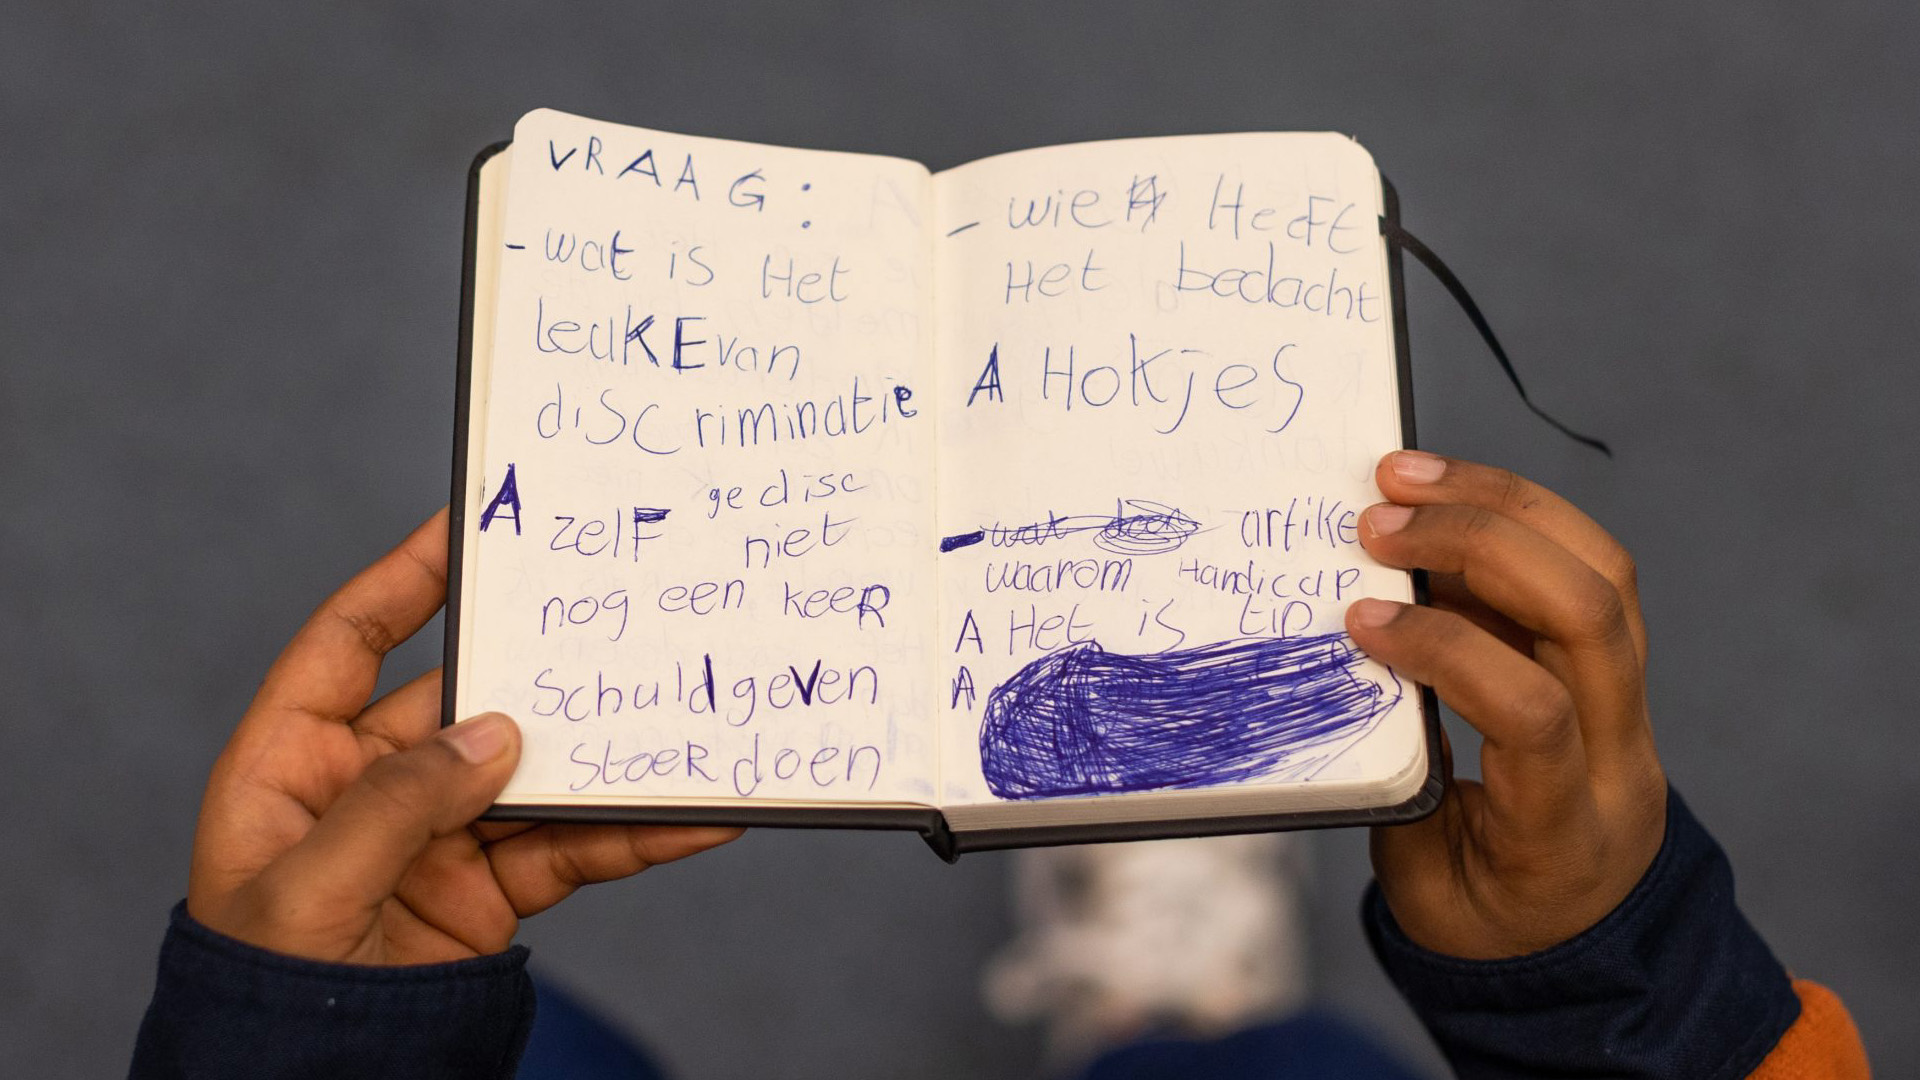 VRAAG:
- wat is Het
leuKE van
discriminatie
A gedisc
zelF niet
nog een keeR
Schuld geven
stoeR doen
- wie HeeFt
Het bedacht
A Hokjes
- wat doen artike
waarom Handicap
A Het is
A